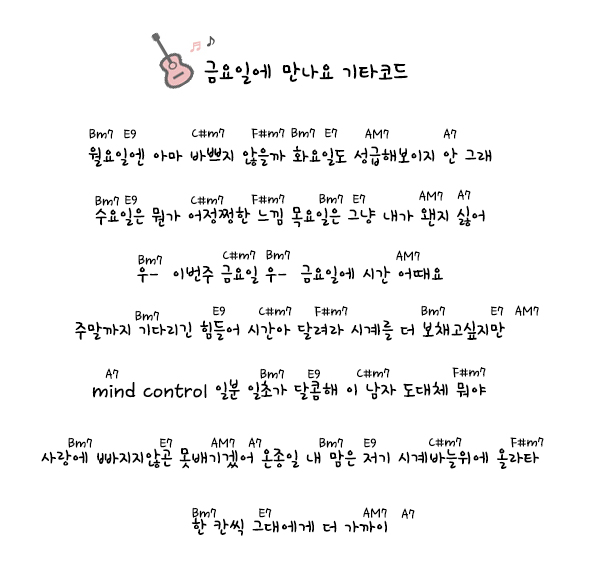 금요일에 만나요 기타코드
Bm7 E9 C#m7 F#m7 Bm7 E7 AM7 A7
월요일엔 아마 바쁘지 않을까 화요일도 성급해보이지 안 그래
Bm7 E9 C#m7 F#m7 Bm7 E7 AM7 A7
수요일은 뭔가 어정쩡한 느낌 목요일은 그냥 내가 왠지 싫어
Bm7 C#m7 Bm7 AM7
우- 이번주 금요일 우- 금요일에 시간 어때요
Bm7 E9 C#m7 F#m7 Bm7 E7 AM7
주말까지 기다리긴 힘들어 시간아 달려라 시계를 더 보채고싶지만
A7 Bm7 E9 C#m7 F#m7
mind control 일분 일초가 달콤해 이 남자 도대체 뭐야
Bm7 E7 AM7 A7 Bm7 E9 C#m7 F#m7
사랑에 빠지지않곤 못배기겠어 온종일 내 맘은 저기 시계바늘위에 올라타
Bm7 E7 AM7 A7
한 칸씩 그대에게 더 가까이